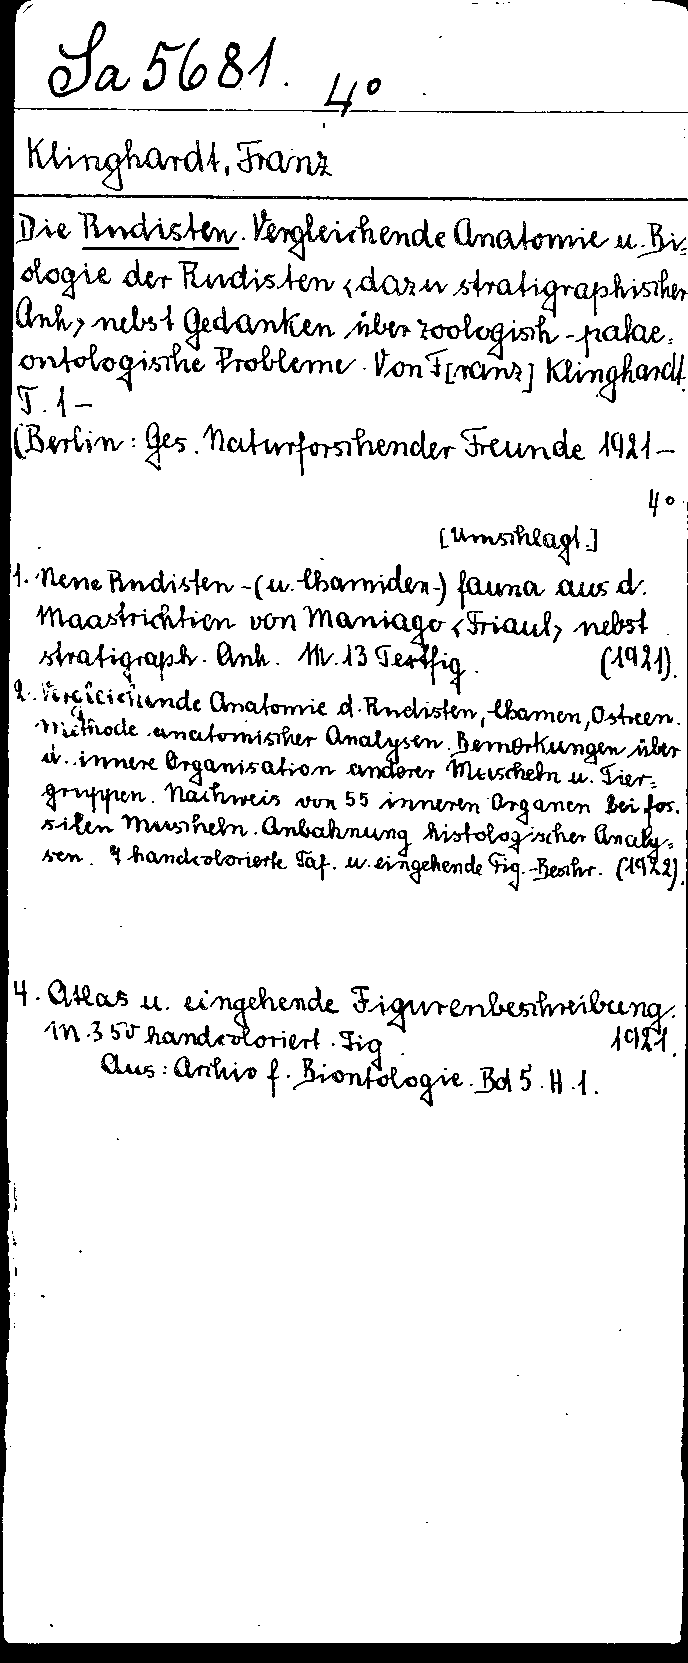 Sa 5681. 4°
Klinghardt, Franz
Die Rudisten. Vergleichende Anatomie u. Bi=
ologie der Rudisten <dazu stratigraphischer
Anh> nebst Gedanken über zoologisch-palae=
ontologische Probleme. Von F[ranz] Klinghardt.
T. 1-
(Berlin: Ges. Naturforschender Freunde 1921-
4°
[Umschlagt.]
1. Neue Rudisten-(u. Chamiden-) fauna aus d.
Maastrichtien von Maniago <Friaul> nebst
stratigraph. Anh. M. 13 Textfig. (1921).
2. Vergleichende Anatomie d. Rudisten, Chamen, Ostreen.
Methode anatomischer Analysen. Bemerkungen über
d. innere Organisation anderer Muscheln u. Tier=
gruppen. Nachweis von 55 inneren Organen bei fos=
silen Muscheln. Anbahnung histologischer Analy=
sen. 7 handcolorierte Taf. u. eingehende Fig.-Beschr. (1922).
4. Atlas u. eingehende Figurenbeschreibung.
M. 350 handcoloriert. Fig. 1921.
Aus: Archiv f. Biontologie. Bd 5. H. 1.